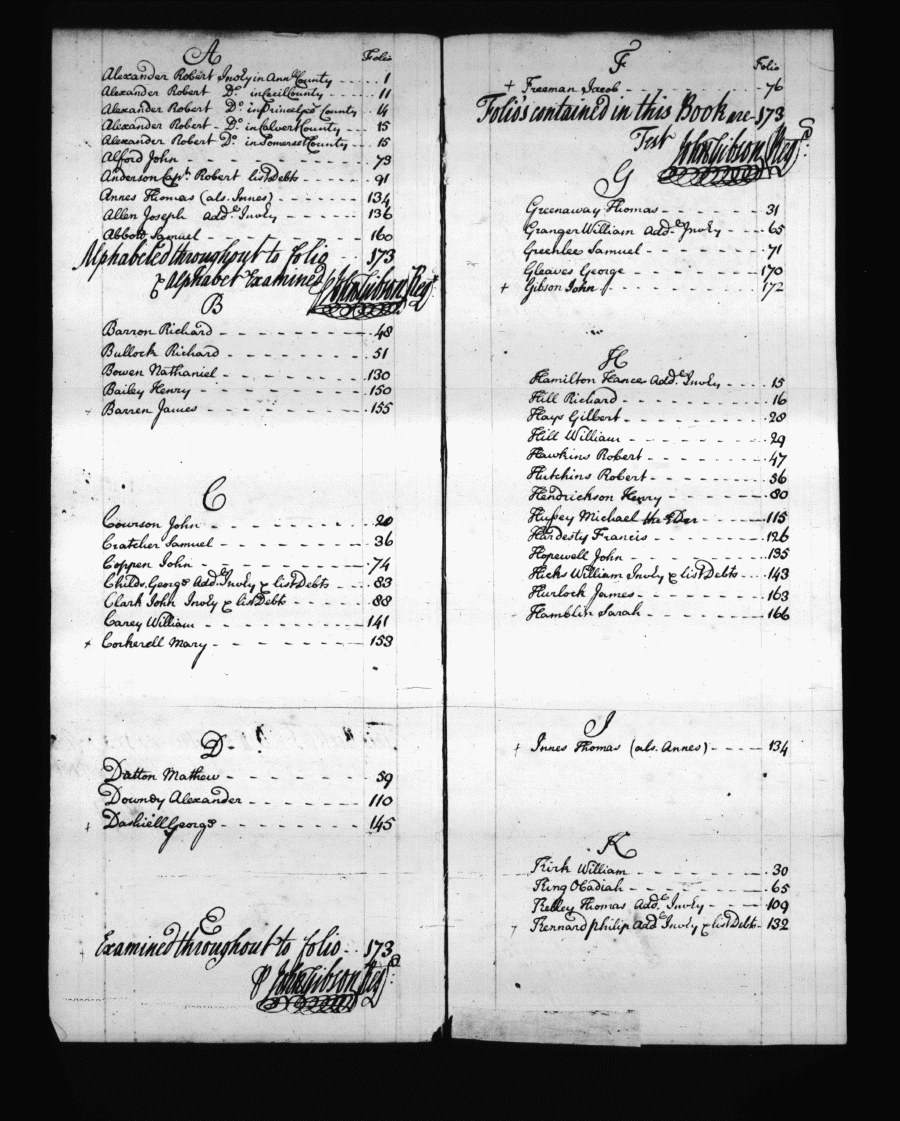 A
Folio
Alexander Robert Invty in Annl County 1
Alexander Robert Do. in Cecil County 11
Alexander Robert Do. in Princeleges County 14
Alexander Robert Do. in Calvert County 15
Alexander Robert Do. in Somerset County 15
Alford John 73
Anderson Capt. Robert list Debts 91
Annes Thomas (als. Innes) 134
Allen Joseph Add.l Invty 136
Abbott Samuel 160
Alphabeted throughout to folio 173
& Alphabet Examined John Gibson Regr
B
Barron Richard 48
Bullock Richard 51
Bowen Nathaniel 130
Bailey Henry 150
Barren James 155
C
Courson John 20
Cratcher Samuel 36
Coppen John 74
Childs George Add.l Invty & list Debts 83
Clark John Invty & list Debts 88
Carey William 141
+ Cockerell Mary 153
D
Dutton Mathew 59
Downdy Alexander 110
+ Dashiell George 145
E
Examined throughout to folio 173
P John Gibson Regr
F
Folio
+ Freeman Jacob 76
Folio's contained in this Book are 173
Test John Gibson Regr
G
Greenaway Thomas 31
Granger William Add.l Invty 65
Greenlee Samuel 71
Gleaves George 170
+ Gibson John 172
H
Hamilton Hance Add.l Invty 15
Hill Richard 16
Hays Gilbert 28
Hill William 29
Hawkins Robert 47
Hutchins Robert 56
Hendrickson Henry 80
Hussey Michael 115
Hardesty Francis 126
Hopewell John 135
Hicks William Invty & list Debts 143
Hurlock James 163
Hamblin Sarah 166
I
+ Innes Thomas (als. Annes) 134
K
Kirk William 30
King Obadiah 65
Kelley Thomas Add.l Invty 109
Kennard Philip Add.l Invty & list Debts 132